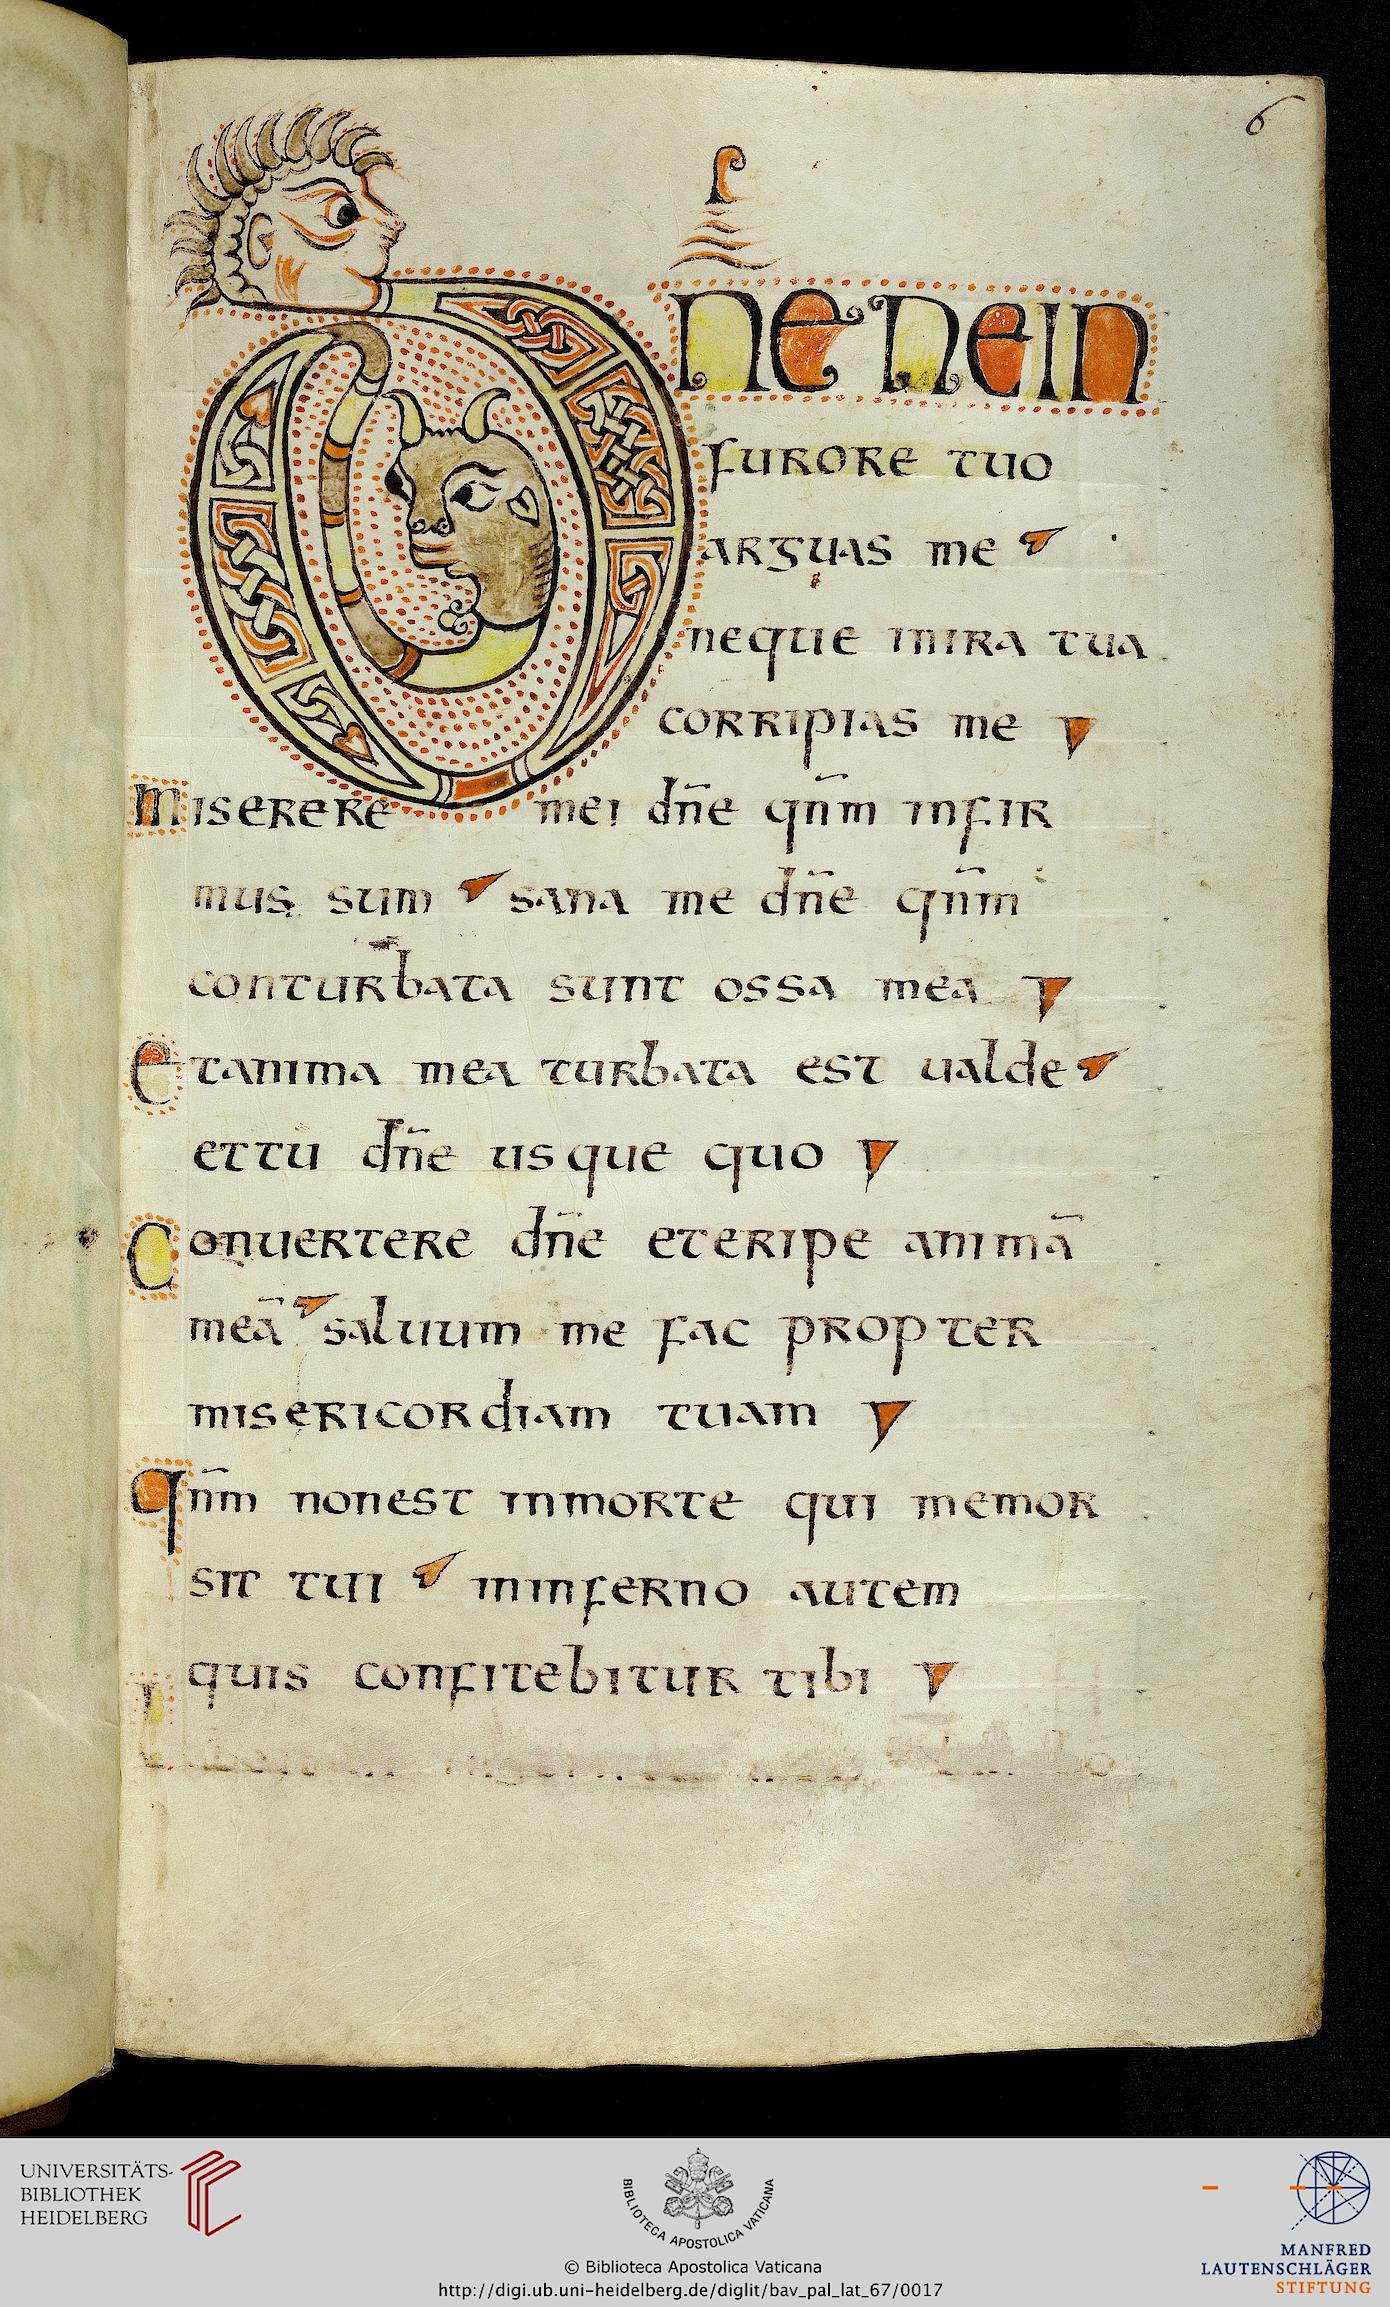 6
DÑE NEIN
furore tuo
arguas me
neque inira tua
corripias me
miserere mei dñe qñm infir
mus sum sana me dñe qñm
conturbata sunt ossa mea
etanima mea turbata est ualde
ettu dñe usque quo
Conuertere dñe eteripe animā
meā saluum me fac propter
misericordiam tuam
Qñm nonest inmorte qui memor
sit tui ininferno autem
quis confitebitur tibi
UNIVERSITÄTS-
BIBLIOTHEK
HEIDELBERG
BIBLIOTECA APOSTOLICA VATICANA
© Biblioteca Apostolica Vaticana
http://digi.ub.uni-heidelberg.de/diglit/bav_pal_lat_67/0017
MANFRED
LAUTENSCHLÄGER
STIFTUNG